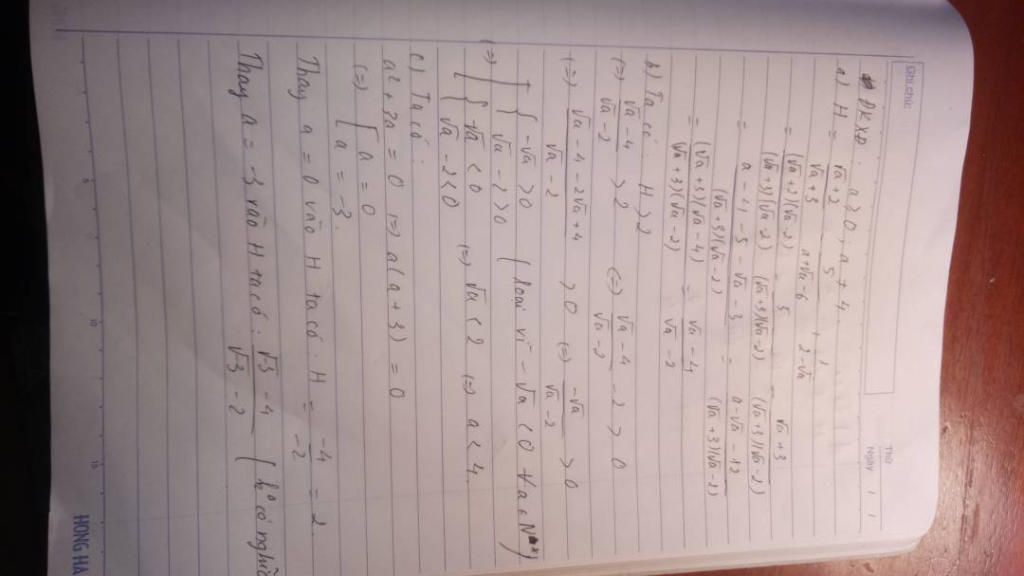 Ghi chú:
Thứ
Ngày
ĐKXĐ: a ≥ 0, a ≠ 4.
a) H = \frac{√a + 2}{√a + 3} - \frac{5}{a + √a - 6} + \frac{1}{2 - √a}
= \frac{(√a + 2)(√a - 2)}{(√a + 3)(√a - 2)} - \frac{5}{(√a + 3)(√a - 2)} - \frac{√a + 3}{(√a + 3)(√a - 2)}
= \frac{a - 4 - 5 - √a - 3}{(√a + 3)(√a - 2)} = \frac{a - √a - 12}{(√a + 3)(√a - 2)}
= \frac{(√a + 3)(√a - 4)}{(√a + 3)(√a - 2)} = \frac{√a - 4}{√a - 2}
b) Ta có: H > 2
(=) \frac{√a - 4}{√a - 2} > 2 (=) \frac{√a - 4}{√a - 2} - 2 > 0
(=) \frac{√a - 4 - 2√a + 4}{√a - 2} > 0 (=) \frac{-√a}{√a - 2} > 0
(=) [ { -√a > 0
√a - 2 > 0 (loại vì -√a < 0 ∀a
{ -√a < 0
√a - 2 < 0 (=) √a < 2 (=) a < 4.
c) Ta có:
a² + 3a = 0 (=) a(a + 3) = 0
(=) [ a = 0
a = -3.
Thay a = 0 vào H ta có: H = \frac{-4}{-2} = 2.
Thay a = -3 vào H ta có: \frac{√3 - 4}{√3 - 2} (k° có nghiệ
5
10
15
HONG HA